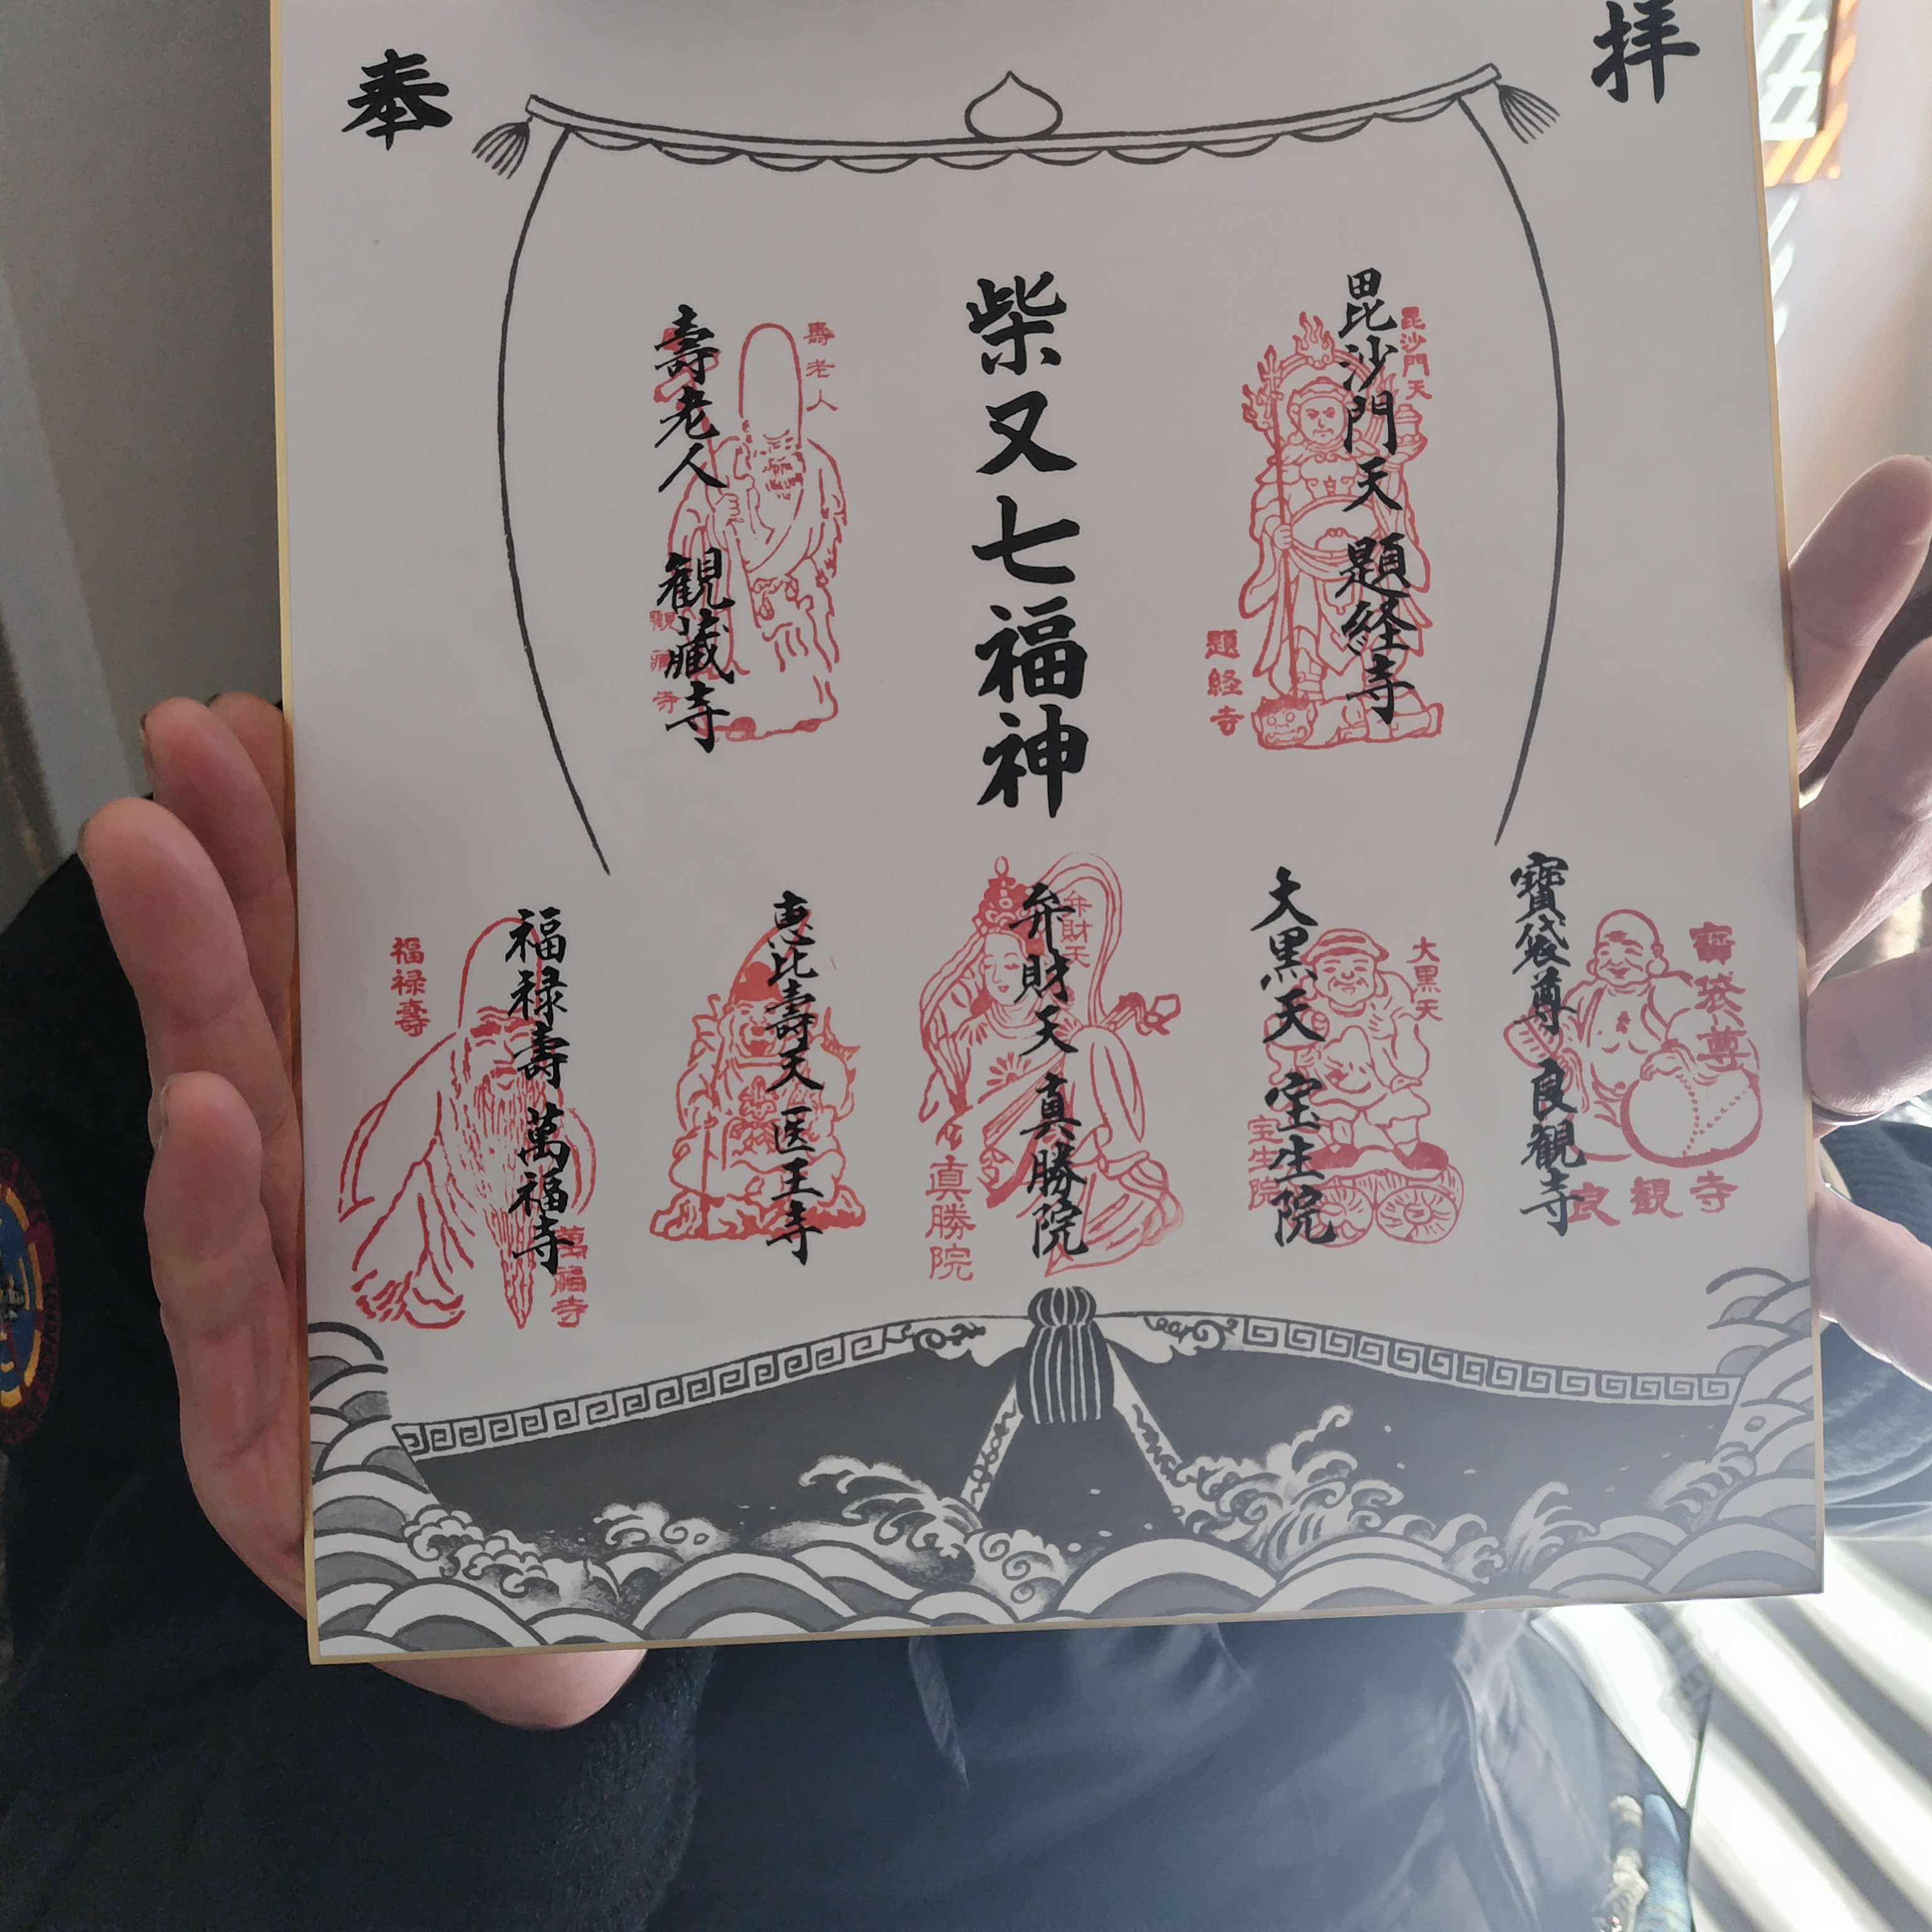 奉
拝
柴又七福神
毘沙門天 題経寺
毘沙門天
題経寺
壽老人 観蔵寺
壽老人
観蔵寺
寶袋尊 良観寺
寶袋尊
良観寺
大黒天 宝生院
大黒天
宝生院
弁財天 真勝院
弁財天
真勝院
恵比壽天 医王寺
福禄壽 萬福寺
福禄壽
萬福寺